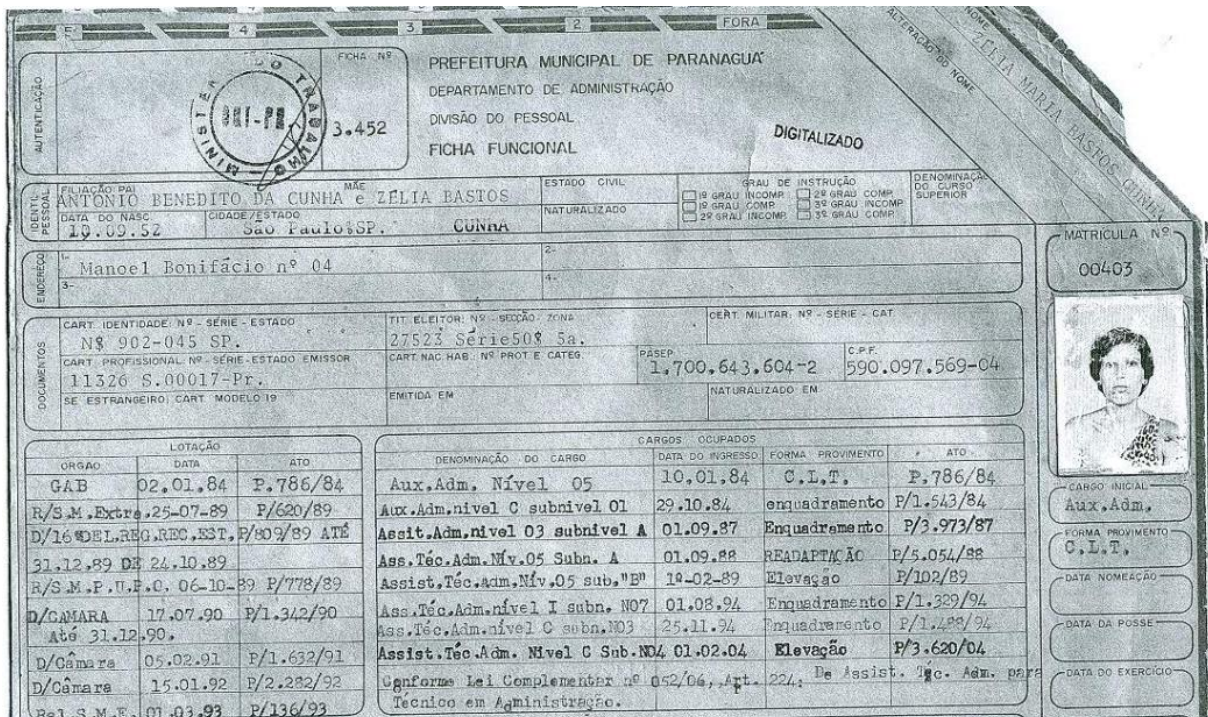 5
4
3
2
FORA
ALTERAÇÃO DO NOME
NOME
ZÉLIA MARIA BASTOS CUNHA
AUTENTICAÇÃO
MINISTÉRIO DO TRABALHO
FICHA Nº
3.452
PREFEITURA MUNICIPAL DE PARANAGUÁ
DEPARTAMENTO DE ADMINISTRAÇÃO
DIVISÃO DO PESSOAL
FICHA FUNCIONAL
DIGITALIZADO
IDENTIF. PESSOAL
FILIAÇÃO: PAI MÃE
ANTONIO BENEDITO DA CUNHA e ZÉLIA BASTOS
CUNHA
DATA DO NASC. CIDADE/ESTADO
10.09.52 São Paulo&SP.
ESTADO CIVIL
NATURALIZADO
GRAU DE INSTRUÇÃO
1º GRAU INCOMP. 2º GRAU COMP.
1º GRAU COMP. 3º GRAU INCOMP.
2º GRAU INCOMP. 3º GRAU COMP.
DENOMINAÇÃO DO CURSO SUPERIOR
MATRICULA Nº
00403
ENDEREÇO
1- Manoel Bonifácio nº 04 2-
3- 4-
DOCUMENTOS
CART. IDENTIDADE: Nº - SÉRIE - ESTADO TIT. ELEITOR: Nº - SECÇÃO - ZONA CERT. MILITAR: Nº - SÉRIE - CAT.
N$ 902-045 SP. 27523 Série50$ 5a.
CART. PROFISSIONAL: Nº - SÉRIE - ESTADO EMISSOR CART. NAC. HAB.: Nº PROT. E CATEG. PASEP C.P.F.
11326 S.00017-Pr. 1.700.643.604-2 590.097.569-04
SE ESTRANGEIRO: CART. MODELO 19 EMITIDA EM NATURALIZADO EM
LOTAÇÃO
ORGÃO DATA ATO
GAB 02.01.84 P.786/84
R/S.M.Extra.25-07-89 P/620/89
D/16ªDEL.REG.REC.EST. P/809/89 ATÉ
31.12.89 DE 24.10.89
R/S.M.P.U.P.C. 06-10-89 P/778/89
D/CAMARA 17.07.90 P/1.342/90
Até 31.12.90.
D/Câmara 05.02.91 P/1.632/91
D/Câmara 15.01.92 P/2.282/92
Rel S.M.E. 01.03.93 P/136/93
CARGOS OCUPADOS
DENOMINAÇÃO DO CARGO DATA DO INGRESSO FORMA PROVIMENTO ATO
Aux.Adm. Nível 05 10.01.84 C.L.T. P.786/84
Aux.Adm.nivel C subnivel 01 29.10.84 enquadramento P/1.543/84
Assit.Adm.nivel 03 subnivel A 01.09.87 Enquadramento P/3.973/87
Ass.Téc.Adm.Nív.05 Subn. A 01.09.88 READAPTAÇÃO P/5.054/88
Assist.Téc.adm.Nív.05 sub."B" 1º-02-89 Elevação P/102/89
Ass.Téc.Adm.nível I subn. NO7 01.08.94 Enquadramento P/1.329/94
Ass.Téc.Adm.nível C subn.NO3 25.11.94 Enquadramento P/1.488/94
Assist.Téc.Adm. Nivel C Sub.NO4 01.02.04 Elevação P/3.620/04
Conforme Lei Complementar nº 052/06, Art. 224: De Assist. Téc. Adm. para
Técnico em Administração.
CARGO INICIAL
Aux.Adm.
FORMA PROVIMENTO
C.L.T.
DATA NOMEAÇÃO
DATA DA POSSE
DATA DO EXERCÍCIO